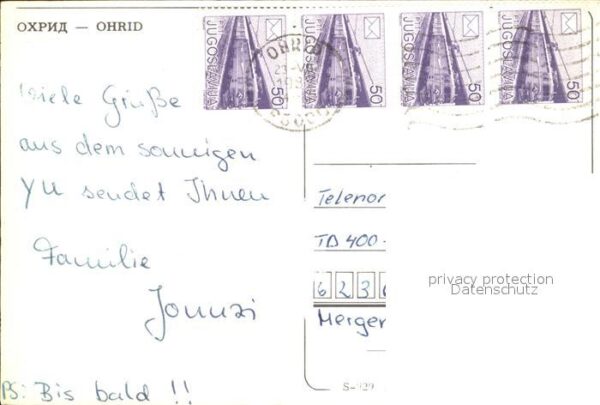 ОХРИД — OHRID
JUGOSLAVIJA 50
JUGOSLAVIJA 50
JUGOSLAVIJA 50
JUGOSLAVIJA 50
OHRID
Viele Grüße
aus dem sonnigen
YU sendet Ihnen
Familie
Jonuzi
PS: Bis bald !!
Telenor
TD 400-
6 2 3 6
Merger
privacy protection
Datenschutz